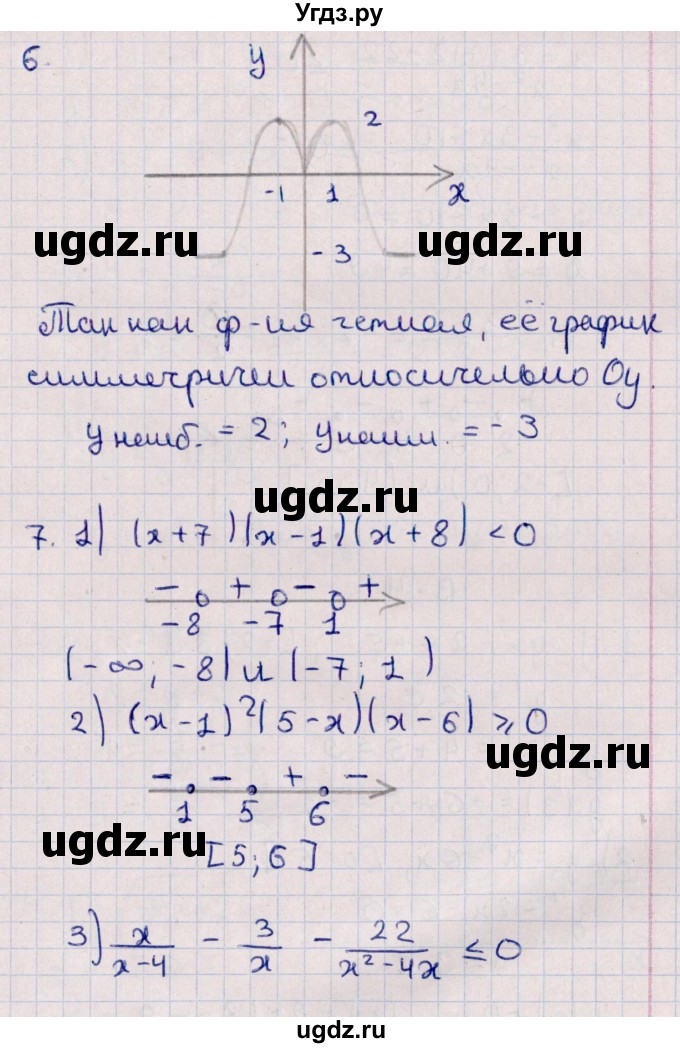 Угдз.ру
6.
y
2
-1 1 x
ugdz.ru ugdz.ru
- 3
Так как ф-ия четная, её график
симметричен относительно Oy.
y наиб. = 2; y наим. = - 3
ugdz.ru
7. 1) (x+7)(x-1)(x+8) < 0
- + - +
-8 -7 1
(-∞; -8) и (-7; 1)
2) (x-1)²(5-x)(x-6) ≥ 0
ugdz.ru
- - + -
1 5 6
ugdz.ru
[5; 6]
3) x/(x-4) - 3/x - 22/(x²-4x) ≤ 0
ugdz.ru